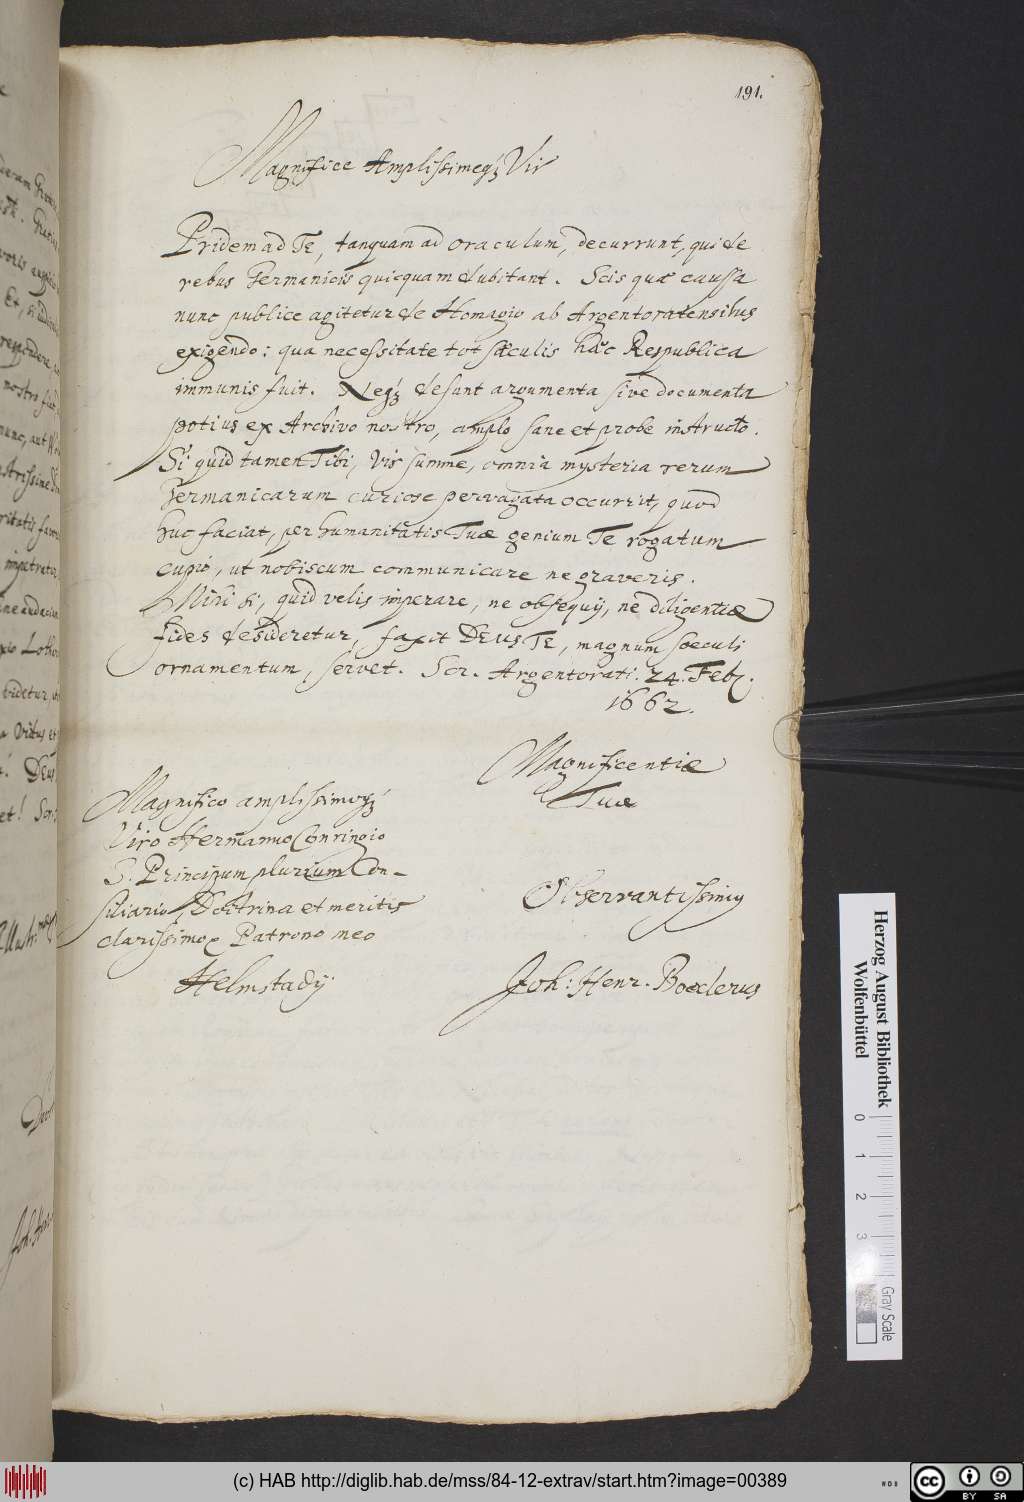 191.
Magnifice Amplissimeq; Vir
Pridem ad Te, tanquam ad oraculum, decurrunt, qui de
rebus Germanicis quicquam dubitant. Scis quæ caussa
nunc publice agitetur de Homagio ab Argentoratensibus
exigendo: qua necessitate tot sæculis hæc Respublica
immunis fuit. Neq; desunt argumenta sive documenta
potius ex Archivo nostro, amplo sane et probe instructo.
Si quid tamen Tibi, Vir summe, omnia mysteria rerum
Germanicarum curiose pervagata occurrit, quod
huc faciat, per humanitatis Tuæ genium Te rogatum
cupio, ut nobiscum communicare ne graveris.
Mihi si, quid velis imperare, ne obsequij, ne diligentiæ
fides desideretur, faxit DEUS TE, magnum sæculi
ornamentum, servet. Scr. Argentorati. 24. Feb.
1662.
Magnificentiæ
Tuæ
Magnifico amplissimoq;
Viro Hermanno Conringio
S. Principum plurium Con-
siliario, Doctrina et meritis
clarissimo, Patrono meo
Helmstadij
Observantissimus
Joh: Henr. Boeclerus
Herzog August Bibliothek
Wolfenbüttel
0 1 2 3
Gray Scale
(c) HAB http://diglib.hab.de/mss/84-12-extrav/start.htm?image=00389
cc BY SA